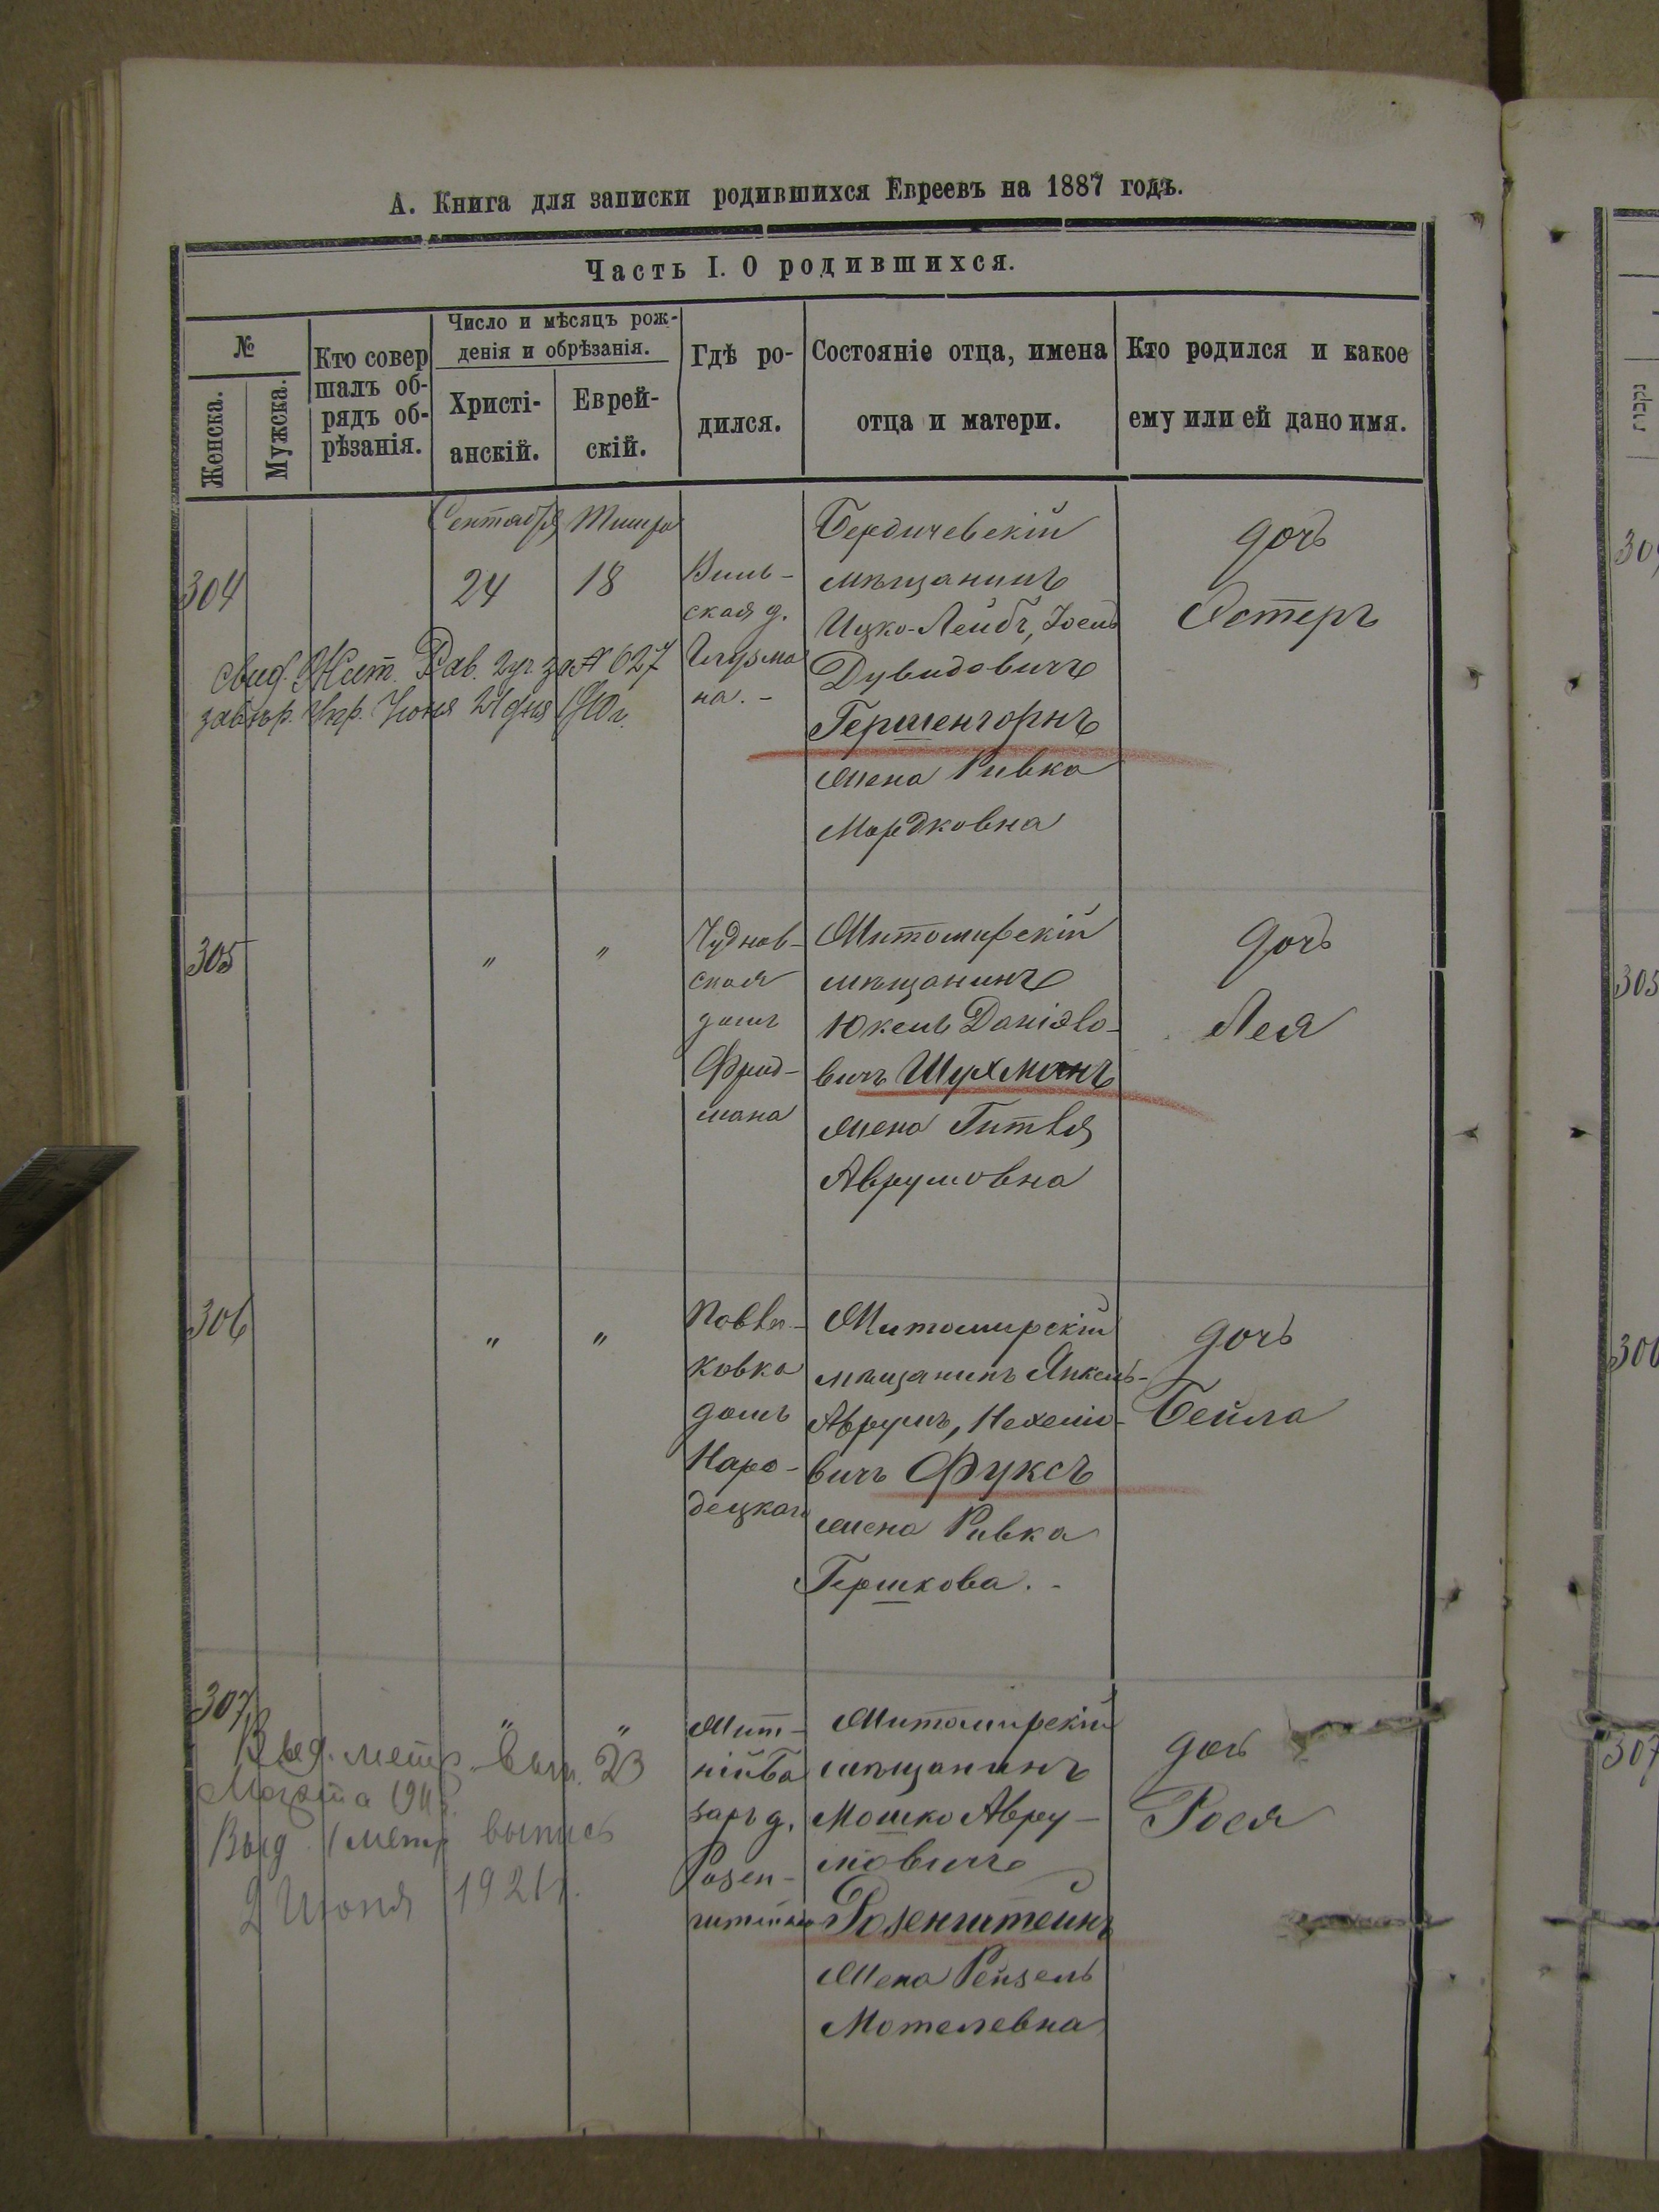 А. Книга для записки родившихся Евреевъ на 1887 годъ.
Часть I. О родившихся.
№
Женска.
Мужска.
Кто совер
шалъ об-
рядъ об-
рѣзанія.
Число и мѣсяцъ рож-
денія и обрѣзанія.
Христі-
анскій.
Еврей-
скій.
Гдѣ ро-
дился.
Состояніе отца, имена
отца и матери.
Кто родился и какое
ему или ей дано имя.
304
Сентября
24
Тишра
18
Виль-
ская д.
на.-
Бердичевскій
мѣщанинъ
Ицко-Лейбъ, Іосель
Дувидовичъ
Гершенгорнъ
жена Ривка
Мордковна
дочь
Эстеръ
свид. Жит. Рав. за № 627
Іюня 21 дня 1910 г.
305
"
"
Чуднов-
ская
домъ
Фрид-
мана
Житомирскій
мѣщанинъ
Юкель Даніэло-
вичъ Шухманъ
жена Гитля
Аврумовна
дочь
Лея
306
"
"
Павли-
ковка
домъ
Наро-
децкаго
Житомирскій
мѣщанинъ Янкель-
Аврумъ, Нехеміо-
вичъ Фуксъ
жена Ривка
Гершкова.-
дочь
Бейла
307
"
"
Жит-
ній Ба
заръ д.
Розен-
штейна
Житомирскій
мѣщанинъ
Мошко Авру-
мовичъ
Розенштейнъ
Жена Рейзель
Мотелевна
дочь
Рося
Выд. метр. вып. 23
Марта
Выд. метр выпись
2 Июня 1921 г.
304
305
306
307